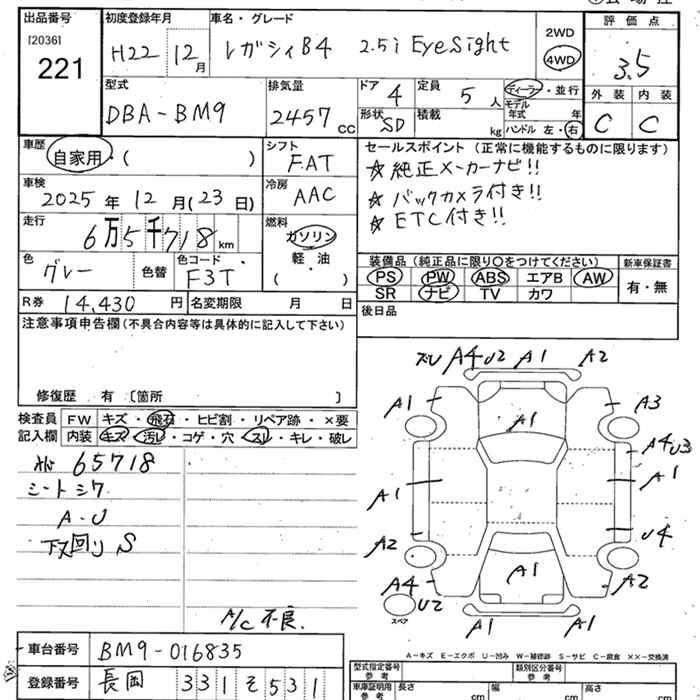 出品番号
[2036]
221
初度登録年月
H22 12月
車名・グレード
レガシィB4 2.5i EyeSight
2WD
4WD
評価点
3.5
外装 内装
C C
型式
DBA-BM9
排気量
2457 CC
ドア 4
形状 SD
定員 5 人
積載 kg
ディーラー・並行
モデル年式 年
ハンドル 左・右
車歴
自家用・( )
シフト
FAT
車検
2025年 12月(23日)
冷房
AAC
走行
6万5千718km
燃料
ガソリン
軽・油
( )
色
グレー
色替
色コード
F3T
R券 14,430円
名変期限 月 日
セールスポイント(正常に機能するものに限ります)
☆純正メーカーナビ!!
☆バックカメラ付き!!
☆ETC付き!!
装備品(純正品に限り○をつけてください)
新車保証書
PS PW ABS エアB AW
SR ナビ TV カワ
有・無
後日品
注意事項申告欄(不具合内容等は具体的に記入して下さい)
修復歴 有 〔箇所 〕
検査員記入欄
FW キズ・飛石・ヒビ割・リペア跡・×要
内装 キズ・汚レ・コゲ・穴・スレ・キレ・破レ
65718
シートシワ
A-U
下回りS
A/C不良.
ズレ A4U2 A1 A2
A1 A1 A3
A4U3
A1 A1
A2 U4
A4 A1 A2
U2
スペア
A1 A1
A-キズ E-エクボ U-凹み W-補修跡 S-サビ C-腐食 ××-交換済
車台番号 BM9-016835
登録番号 長岡 331 そ 531
型式指定番号 参考
類別区分番号 参考
車庫証明用 参考
長さ cm 幅 cm 高さ cm